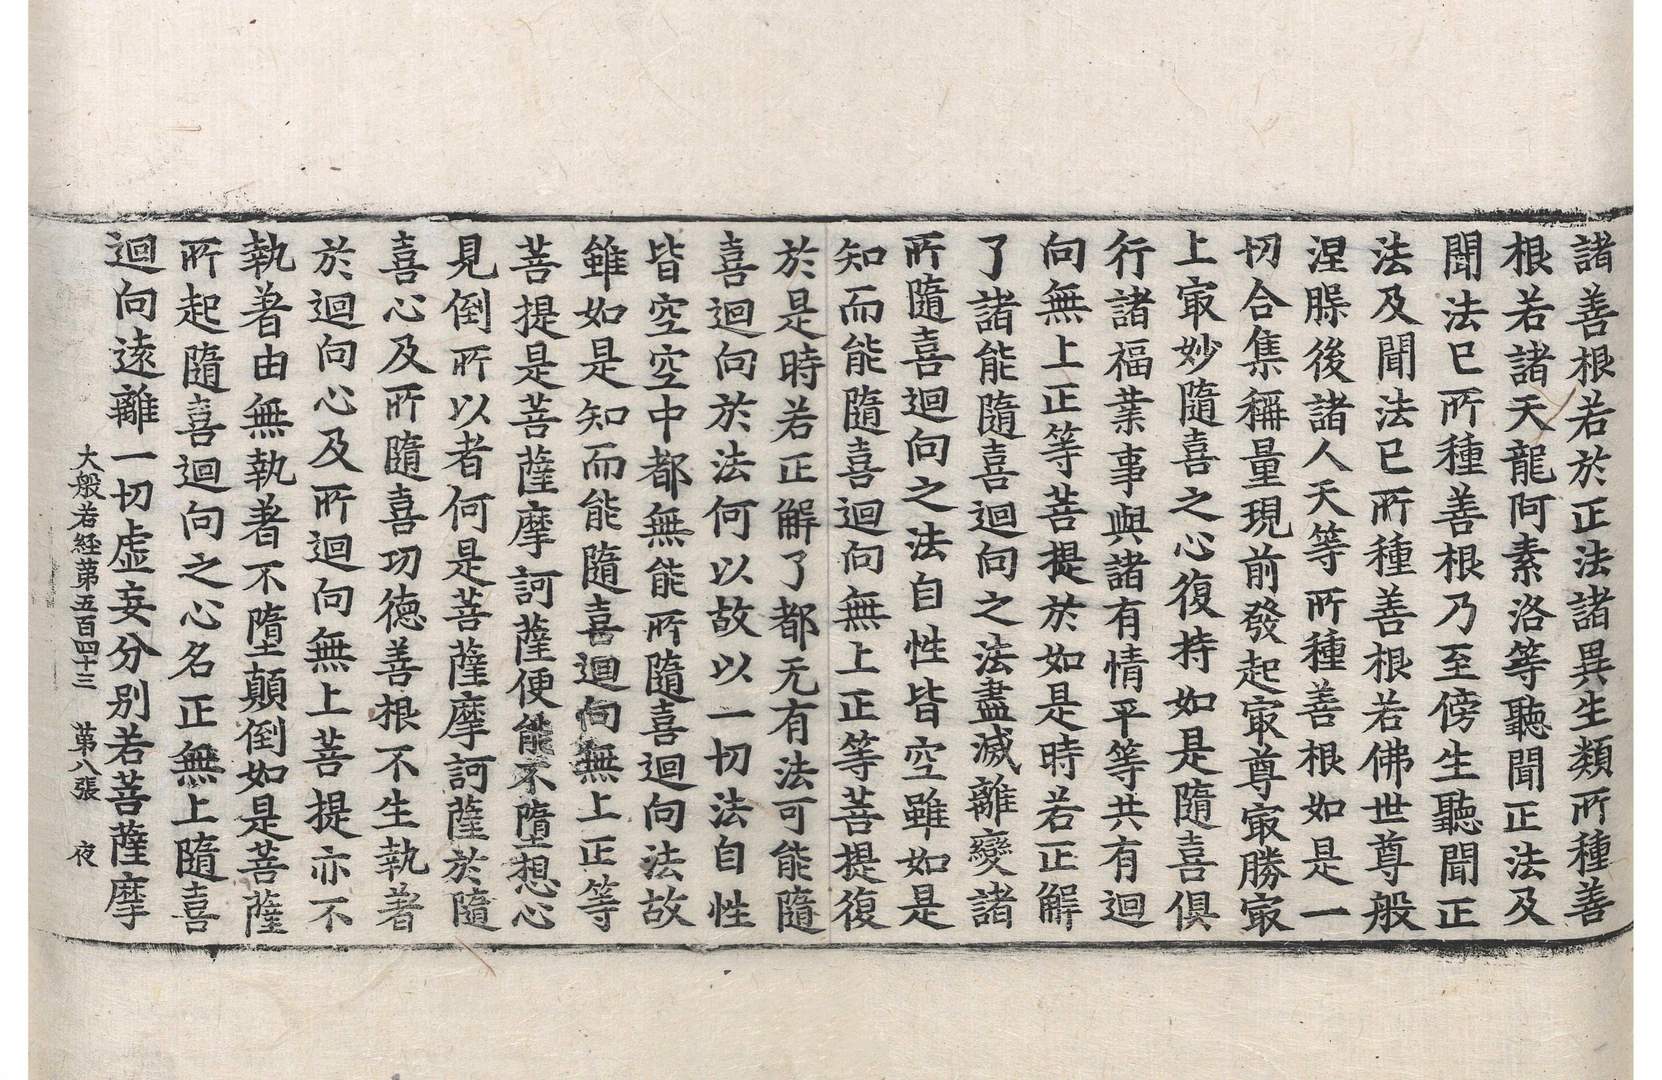 諸善根若於正法諸異生類所種善
根若諸天龍阿素洛等聽聞正法及
聞法已所種善根乃至傍生聽聞正
法及聞法已所種善根若佛世尊般
涅槃後諸人天等所種善根如是一
切合集稱量現前發起㝡尊㝡勝㝡
上㝡妙隨喜之心復持如是隨喜俱
行諸福業事與諸有情平等共有迴
向無上正等菩提於如是時若正解
了諸能隨喜迴向之法盡滅離變諸
所隨喜迴向之法自性皆空雖如是
知而能隨喜迴向無上正等菩提復
於是時若正解了都无有法可能隨
喜迴向於法何以故以一切法自性
皆空空中都無能所隨喜迴向法故
雖如是知而能隨喜迴向無上正等
菩提是菩薩摩訶薩便能不墮想心
見倒所以者何是菩薩摩訶薩於隨
喜心及所隨喜功德善根不生執著
於迴向心及所迴向無上菩提亦不
執著由無執著不墮顛倒如是菩薩
所起隨喜迴向之心名正無上隨喜
迴向遠離一切虛妄分別若菩薩摩
大般若経第五百四十三　第八張　夜